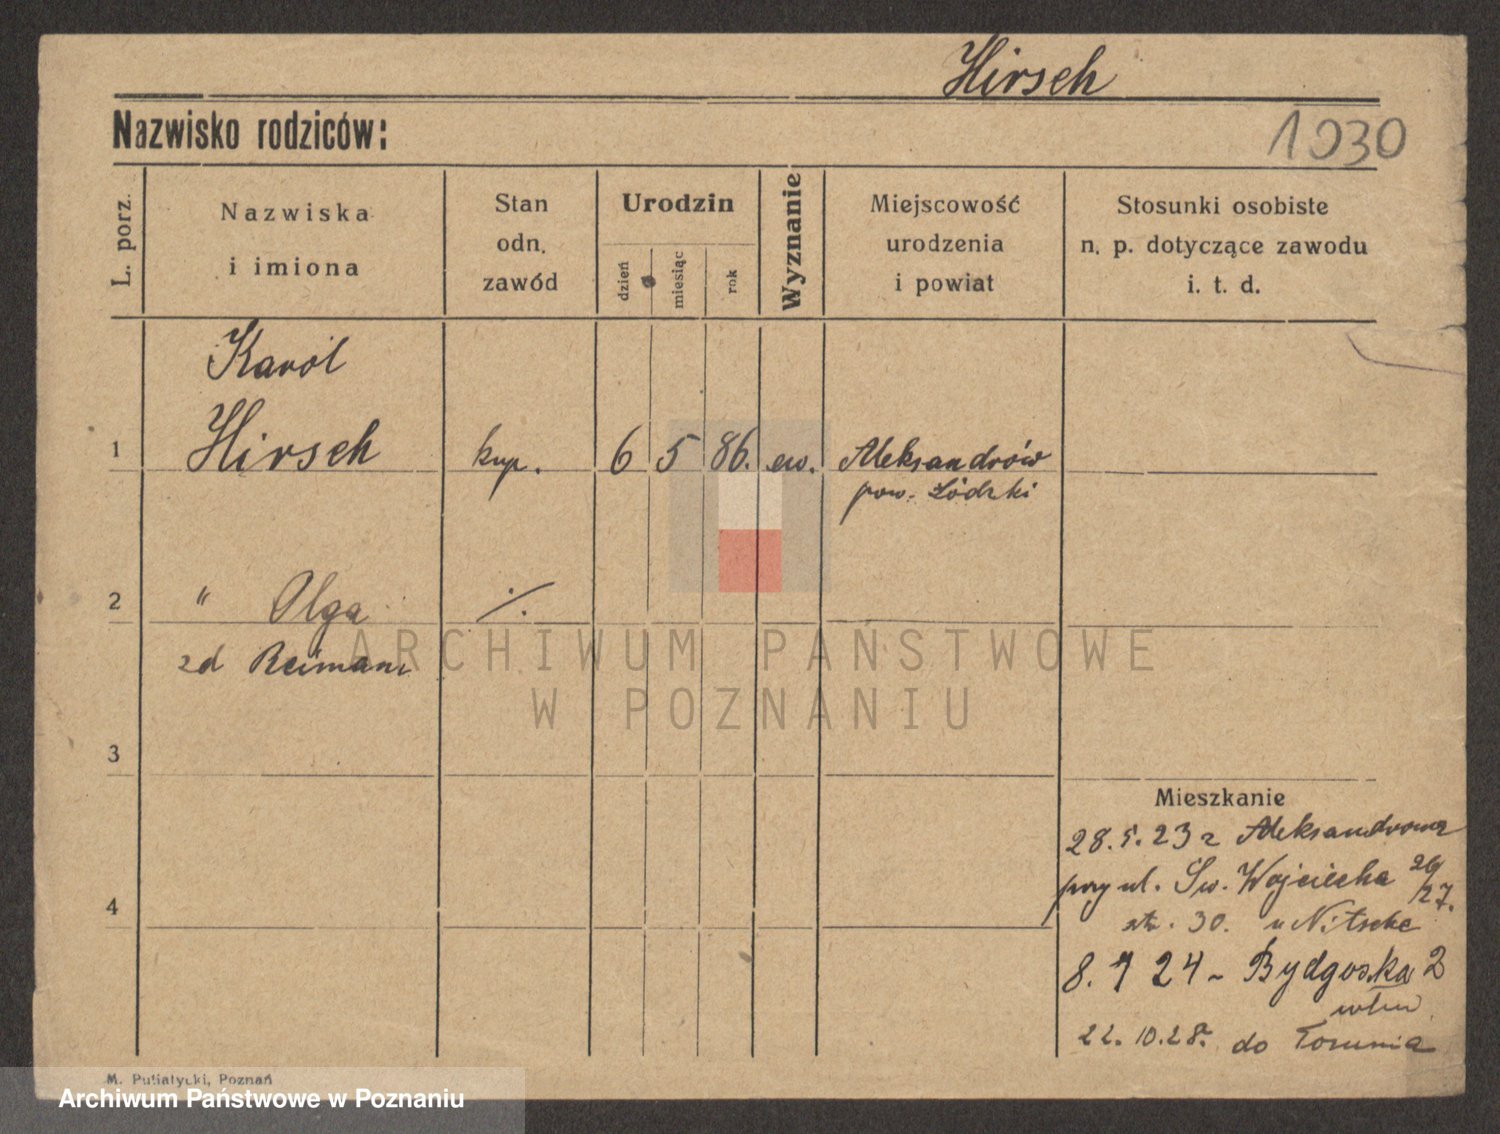 Hirsch
Nazwisko rodziców:
1930
L. porz.
Nazwiska
i imiona
Stan
odn.
zawód
Urodzin
dzień
miesiąc
rok
Wyznanie
Miejscowość
urodzenia
i powiat
Stosunki osobiste
n. p. dotyczące zawodu
i. t. d.
Karol
1 Hirsch kup. 6 5 86. ew. Aleksandrów
pow. Łódzki
2 " Olga ./.
zd Reimann
3
4
Mieszkanie
28.5.23 z Aleksandrowa
przy ul. Św. Wojciecha 26/27.
str. 30. u Nitschke
8. 7 24 - Bydgoska 2
22.10.28. do Torunia
M. Putiatycki, Poznań
ARCHIWUM PAŃSTWOWE
W POZNANIU
Archiwum Państwowe w Poznaniu